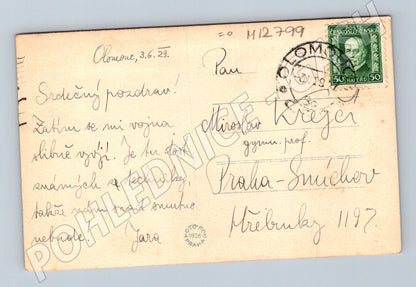 Olomouc, 3.6.29.
Srdečný pozdrav!
Zatím se mi vojna
slibně vyvíjí. Je tu dost
známých z
takže snad smutno
nebude. Jara
=0 M12799
Pan
Miroslav Krejčí
gymn. prof.
Praha-Smíchov
Hřebenky 1197.
ČESKOSLOVENSKO
50 HALÉŘŮ 50
OLOMOUC
FOTO-FON
1928
PRAHA
POHLEDNICE